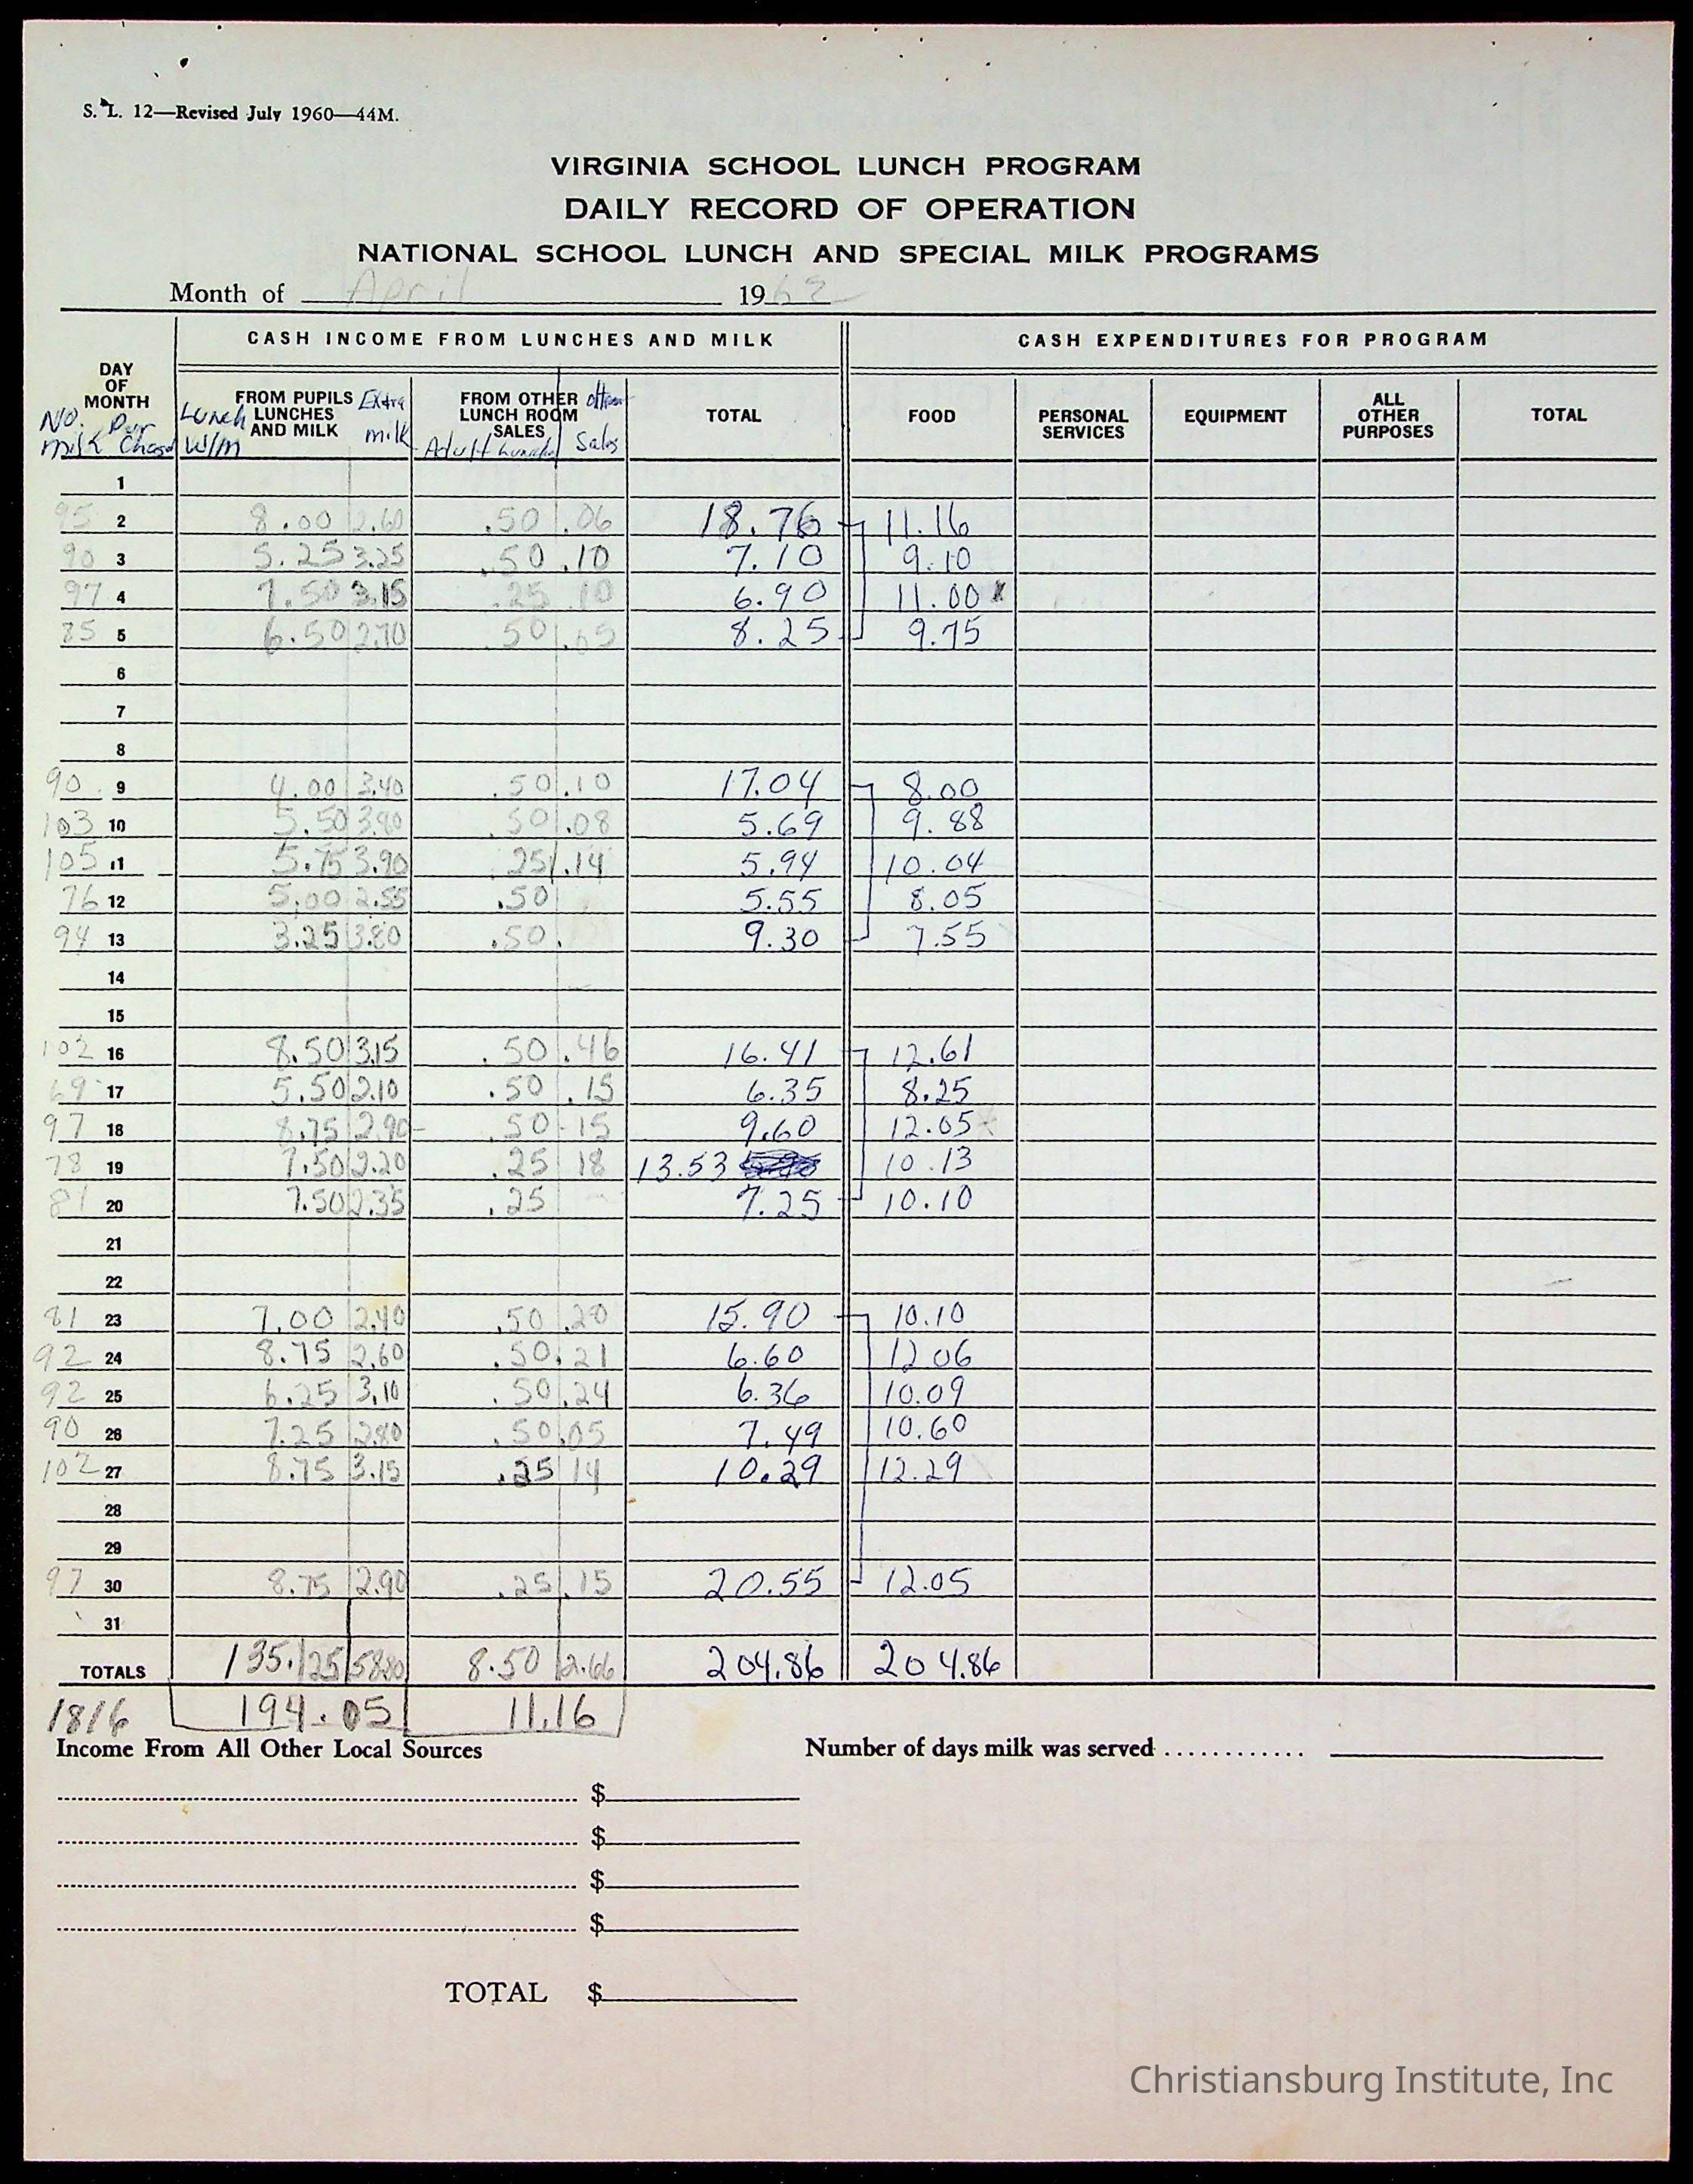 S. L. 12—Revised July 1960—44M.
VIRGINIA SCHOOL LUNCH PROGRAM
DAILY RECORD OF OPERATION
NATIONAL SCHOOL LUNCH AND SPECIAL MILK PROGRAMS
Month of April 1962
CASH INCOME FROM LUNCHES AND MILK CASH EXPENDITURES FOR PROGRAM
DAY OF MONTH FROM PUPILS LUNCHES AND MILK FROM OTHER LUNCH ROOM SALES TOTAL FOOD PERSONAL SERVICES EQUIPMENT ALL OTHER PURPOSES TOTAL
No. Milk Pur Chased Lunch W/m Extra milk Adult Lunches Sales
1
95 2 8.00 2.60 .50 .06 18.76 11.16
90 3 5.25 3.25 .50 .10 7.10 9.10
97 4 7.50 3.15 .25 10 6.90 11.00 x
85 5 6.50 2.70 50 .05 8.25 9.75
6
7
8
90 9 4.00 3.40 .50 .10 17.04 8.00
103 10 5.50 3.80 .50 .08 5.69 9.88
105 11 5.75 3.90 .25 .14 5.94 10.04
76 12 5.00 2.55 .50 5.55 8.05
94 13 3.25 3.80 .50 . 9.30 7.55
14
15
102 16 8.50 3.15 .50 .46 16.41 12.61
69 17 5.50 2.10 .50 .15 6.35 8.25
97 18 8.75 2.90 .50 15 9.60 12.05
78 19 7.50 2.20 .25 18 13.53 10.13
81 20 7.50 2.35 .25 7.25 10.10
21
22
81 23 7.00 2.40 .50 .20 15.90 10.10
92 24 8.75 2.60 .50 .21 6.60 12 06
92 25 6.25 3.10 .50 .24 6.36 10.09
90 26 7.25 2.80 .50 .05 7.49 10.60
102 27 8.75 3.15 .25 14 10.29 12.29
28
29
97 30 8.75 2.90 .25 .15 20.55 12.05
31
TOTALS 135.25 58.80 8.50 2.66 204.86 204.86
1816 194.05 11.16
Income From All Other Local Sources Number of days milk was served
$
$
$
$
TOTAL $
Christiansburg Institute, Inc